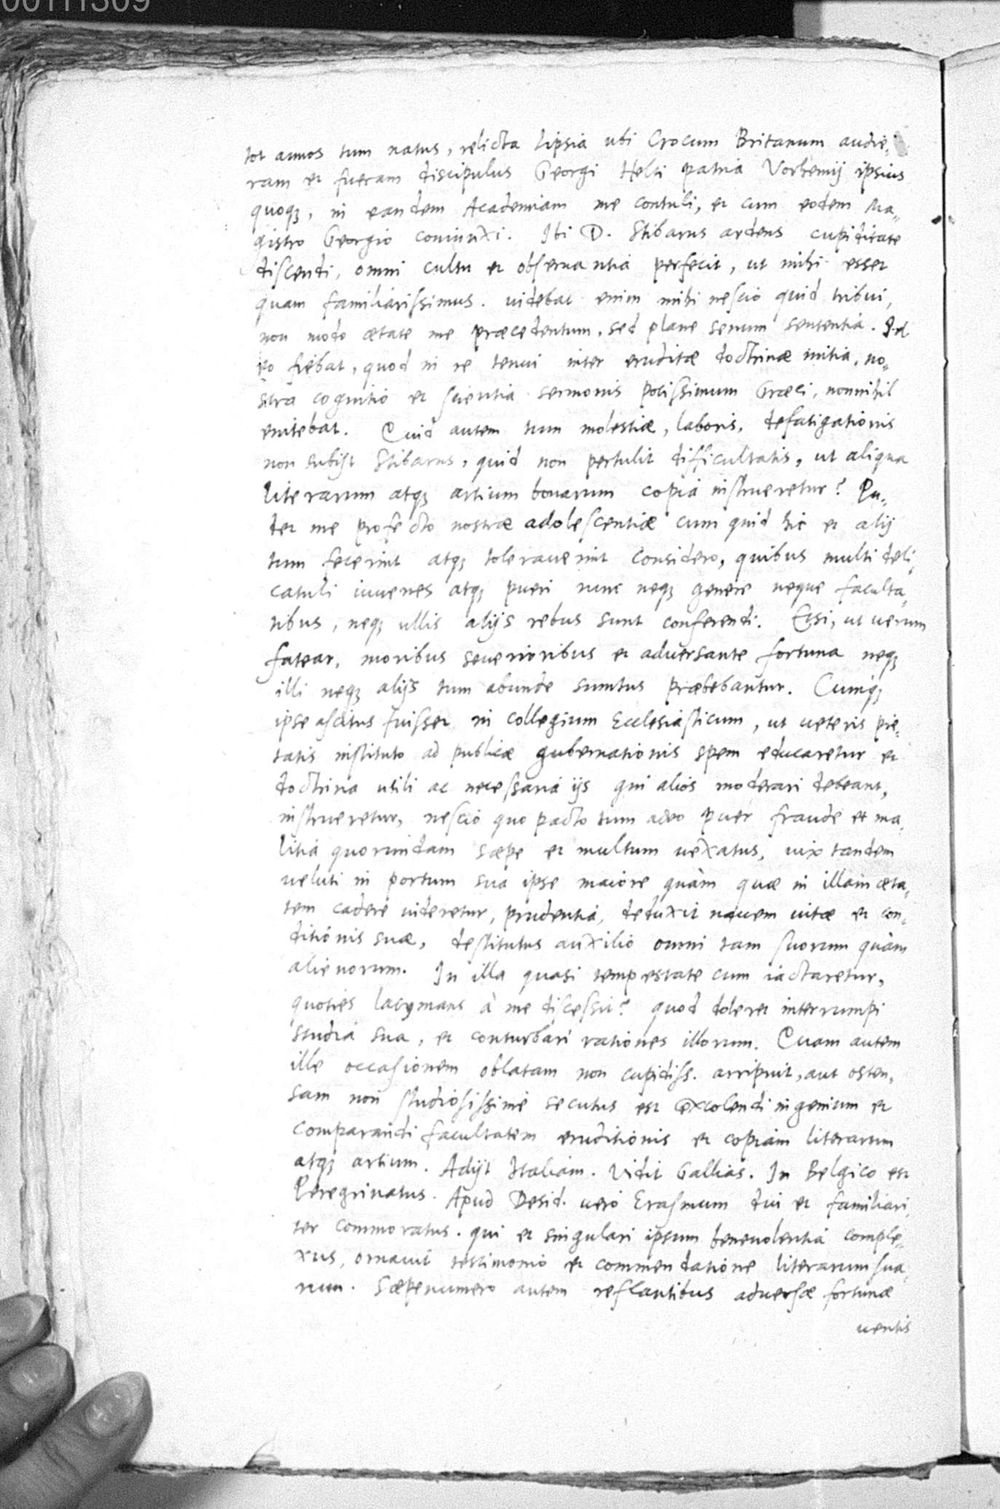 00111309
tot annos tum natus, relicta Lipsia ubi Crocum Britanum audie,
ram et fueram discipulus Georgi Helti patria Vorhemij ipsius
quoq;, in eandem Academiam me contuli, et cum eodem Ma,
gistro Georgio coniunxi. Ibi D. Stibarus ardens cupiditate
discendi, omni cultu et obseruantia perfecit, ut mihi esset
quam familiarissimus. videbat enim mihi nescio quid tribui,
non modo ætate me præcedentum, sed plane senum sententia. Id
eo fiebat, quod in re tenui inter eruditæ doctrinæ initia, no,
stra cognitio et scientia sermonis potissimum Græci, nonnihil
enitebat. Quid autem tum molestiæ, laboris, defatigationis
non subijt Stibarus, quid non pertulit difficultatis, ut aliqua
literarum atq; artium bonarum copia instrueretur? Pu,
det me profecto nostræ adolescentiæ cum quid hic et alij
tum fecerint atq; tolerauerint considero, quibus multi deli,
catuli iuuenes atq; pueri nunc neq; genere neque faculta,
tibus, neq; ullis alijs rebus sunt conferendi. Etsi, ut uerum
fatear, moribus seuerioribus et aduersante fortuna neq;
illi neq; alijs tum abunde sumtus præbebantur. Cumq;
ipse ascitus fuisset in collegium Ecclesiasticum, ut ueteris pie,
tatis instituto ad publicæ gubernationis spem educaretur et
doctrina utili ac necessaria ijs qui alios moderari debeant,
instrueretur, nescio quo pacto tum adeo puer fraude et ma,
litia quorundam sæpe et multum uexatus, uix tandem
ueluti in portum sua ipse maiore quàm quæ in illam æta,
tem cadere uideretur, prudentia, deduxit nauem uitæ et con,
ditionis suæ, destitutus auxilio omni tam suorum quàm
alienorum. In illa quasi tempestate cum iactaretur,
quoties lacrymans à me discessit? quod doleret interrumpi
studia sua, et conturbari rationes illorum. Quam autem
ille occasionem oblatam non cupidiss. arripuit, aut osten,
sam non studiosissime secutus est excolendi ingenium et
comparandi facultatem eruditionis et copiam literarum
atq; artium. Adijt Italiam. Vidit Gallias. In Belgico est
Peregrinatus. Apud Desid. uero Erasmum diu et familiari,
ter commoratus. qui et singulari ipsum beneuolentia comple,
xus, ornauit testimonio et commendatione literarum sua,
rum. Sæpenumero autem reflantibus aduersæ fortunæ
uentis